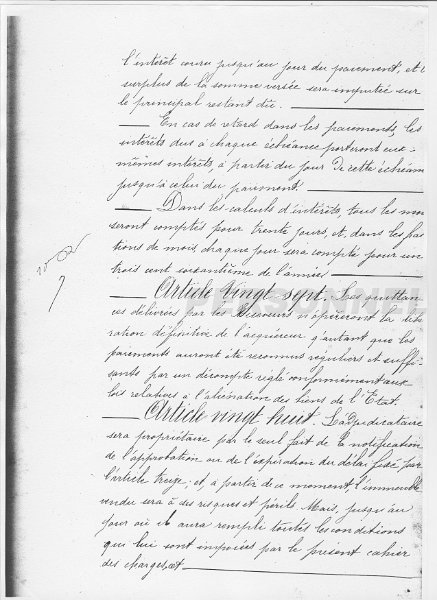 l'intérêt couru jusqu'au jour du paiement, et l
surplus de la somme versée sera imputée sur
le principal restant dû.
En cas de retard dans les paiements, les
intérêts dus à chaque échéance porteront eux-
mêmes intérêts, à partir du jour de cette échéan
jusqu'à celui du paiement.
Dans les calculs d'intérêts tous les mois
seront comptés pour trente jours, et, dans les frac
tions de mois, chaque jour sera compté pour un
trois cent soixantième de l'année
Article vingt sept. Les quittan
ces délivrées par les Receveurs n'opèreront la libé
ration définitive de l'acquéreur qu'autant que les
paiements auront été reconnus réguliers et suffi-
sants par un décompte réglé conformément aux
lois relatives à l'aliénation des biens de l'Etat.
Article vingt huit. L'adjudicataire
sera propriétaire par le seul fait de la notification
de l'approbation ou de l'expiration du délai fixé par
l'article treize, et à partir de ce moment l'immeuble
vendu sera à ses risques et périls. Mais, jusqu'au
jour où il aura rempli toutes les conditions
qui lui sont imposées par le présent cahier
des charges, et